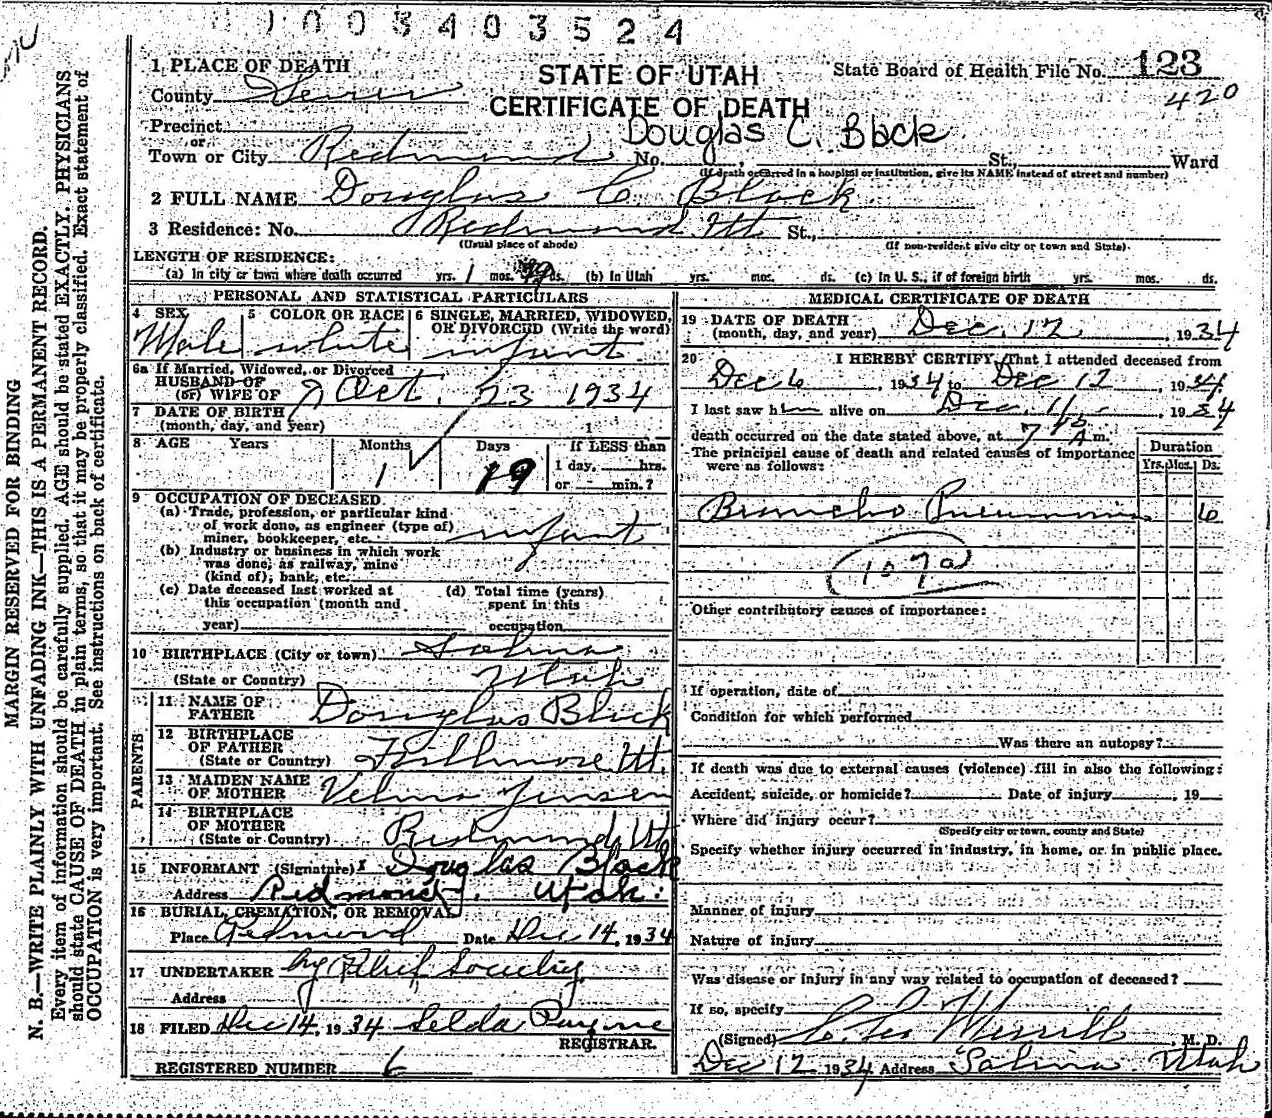 1003403524
1 PLACE OF DEATH
STATE OF UTAH
State Board of Health File No. 123
County Sevier
CERTIFICATE OF DEATH
420
Precinct
Douglas C. Black
or
Town or City Redmond No. , St., Ward
(If death occurred in a hospital or institution, give its NAME instead of street and number)
2 FULL NAME Douglas C. Black
3 Residence: No. Redmond Ut St.,
(Usual place of abode) (If non-resident give city or town and State)
LENGTH OF RESIDENCE:
(a) In city or town where death occurred yrs. 1 mos. ds. (b) In Utah yrs. mos. ds. (c) In U. S., if of foreign birth yrs. mos. ds.
PERSONAL AND STATISTICAL PARTICULARS
4 SEX 5 COLOR OR RACE 6 SINGLE, MARRIED, WIDOWED, OR DIVORCED (Write the word)
Male white infant
6a If Married, Widowed, or Divorced
HUSBAND OF
(or) WIFE OF
7 Oct. 23 1934
7 DATE OF BIRTH
(month, day, and year)
8 AGE Years Months Days If LESS than
1 19 1 day, hrs.
or min.?
9 OCCUPATION OF DECEASED
(a) Trade, profession, or particular kind
of work done, as engineer (type of)
miner, bookkeeper, etc. infant
(b) Industry or business in which work
was done, as railway, mine
(kind of), bank, etc.
(c) Date deceased last worked at
this occupation (month and
year)
(d) Total time (years)
spent in this
occupation
10 BIRTHPLACE (City or town) Salina
(State or Country) Utah
PARENTS
11 NAME OF
FATHER Douglas Black
12 BIRTHPLACE
OF FATHER
(State or Country) Fillmore Ut.
13 MAIDEN NAME
OF MOTHER Velma Jensen
14 BIRTHPLACE
OF MOTHER
(State or Country) Redmond Ut
15 INFORMANT (Signature) x Douglas Black
Address Redmond, Utah.
16 BURIAL, CREMATION, OR REMOVAL
Place Redmond Date Dec 14, 1934
17 UNDERTAKER by Relief Society
Address
18 FILED Dec 14, 1934 Selda Payne
REGISTRAR.
REGISTERED NUMBER 6
MEDICAL CERTIFICATE OF DEATH
19 DATE OF DEATH
(month, day, and year) Dec. 12, 1934
20 I HEREBY CERTIFY, That I attended deceased from
Dec 6, 1934 to Dec 12, 1934
I last saw him alive on Dec. 1934
death occurred on the date stated above, at 7 A m.
The principal cause of death and related causes of importance
were as follows:
Duration
Yrs. Mos. Ds.
Broncho Pneumonia 6
107a
Other contributory causes of importance:
If operation, date of
Condition for which performed
Was there an autopsy?
If death was due to external causes (violence) fill in also the following:
Accident, suicide, or homicide? Date of injury , 19
Where did injury occur?
(Specify city or town, county and State)
Specify whether injury occurred in industry, in home, or in public place.
Manner of injury
Nature of injury
Was disease or injury in any way related to occupation of deceased?
If so, specify
(Signed) Merrill, M. D.
Dec 12 1934 Address Salina Utah
MARGIN RESERVED FOR BINDING
N. B.—WRITE PLAINLY WITH UNFADING INK—THIS IS A PERMANENT RECORD.
Every item of information should be carefully supplied. AGE should be stated EXACTLY. PHYSICIANS
should state CAUSE OF DEATH in plain terms, so that it may be properly classified. Exact statement of
OCCUPATION is very important. See instructions on back of certificate.